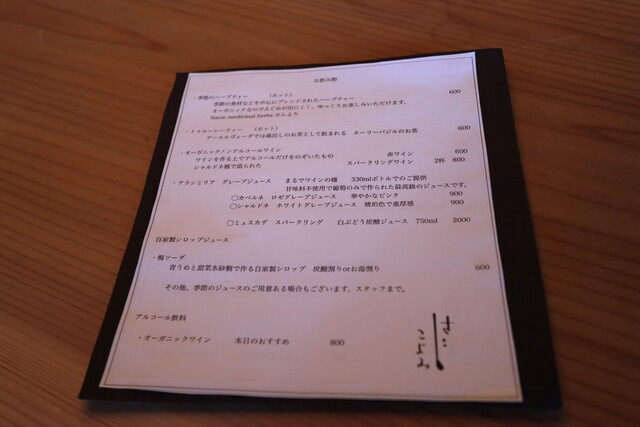 お飲み物
・季節のハーブティー （ホット） 600
季節の食材などを中心にブレンドされたハーブティー
オーガニックなのでえぐみが出にくく、ゆっくりお楽しみいただけます。
Sacre medicinal herbs さんより
・トゥルーシーティー （ホット） 600
アーユルヴェーダでは薬出しのお茶として飲まれる ホーリーバジルのお茶
・オーガニックノンアルコールワイン 赤ワイン 600
ワインを作る上でアルコールだけをのぞいたもの スパークリングワイン 2杯 800
シャルドネ種で造られた
・アラシミリア グレープジュース まるでワインの様 330mlボトルでのご提供
甘味料不使用で葡萄のみで作られた最高級のジュースです。
〇カベルネ ロゼグレープジュース 華やかなピンク 900
〇シャルドネ ホワイトグレープジュース 琥珀色で重厚感 900
〇ミュスカデ スパークリング 白ぶどう炭酸ジュース 750ml 2000
自家製シロップジュース
・梅ソーダ
青うめと甜菜氷砂糖で作る自家製シロップ 炭酸割りorお湯割り 600
その他、季節のジュースのご用意ある場合もございます、スタッフまで。
アルコール飲料
・オーガニックワイン 本日のおすすめ 800